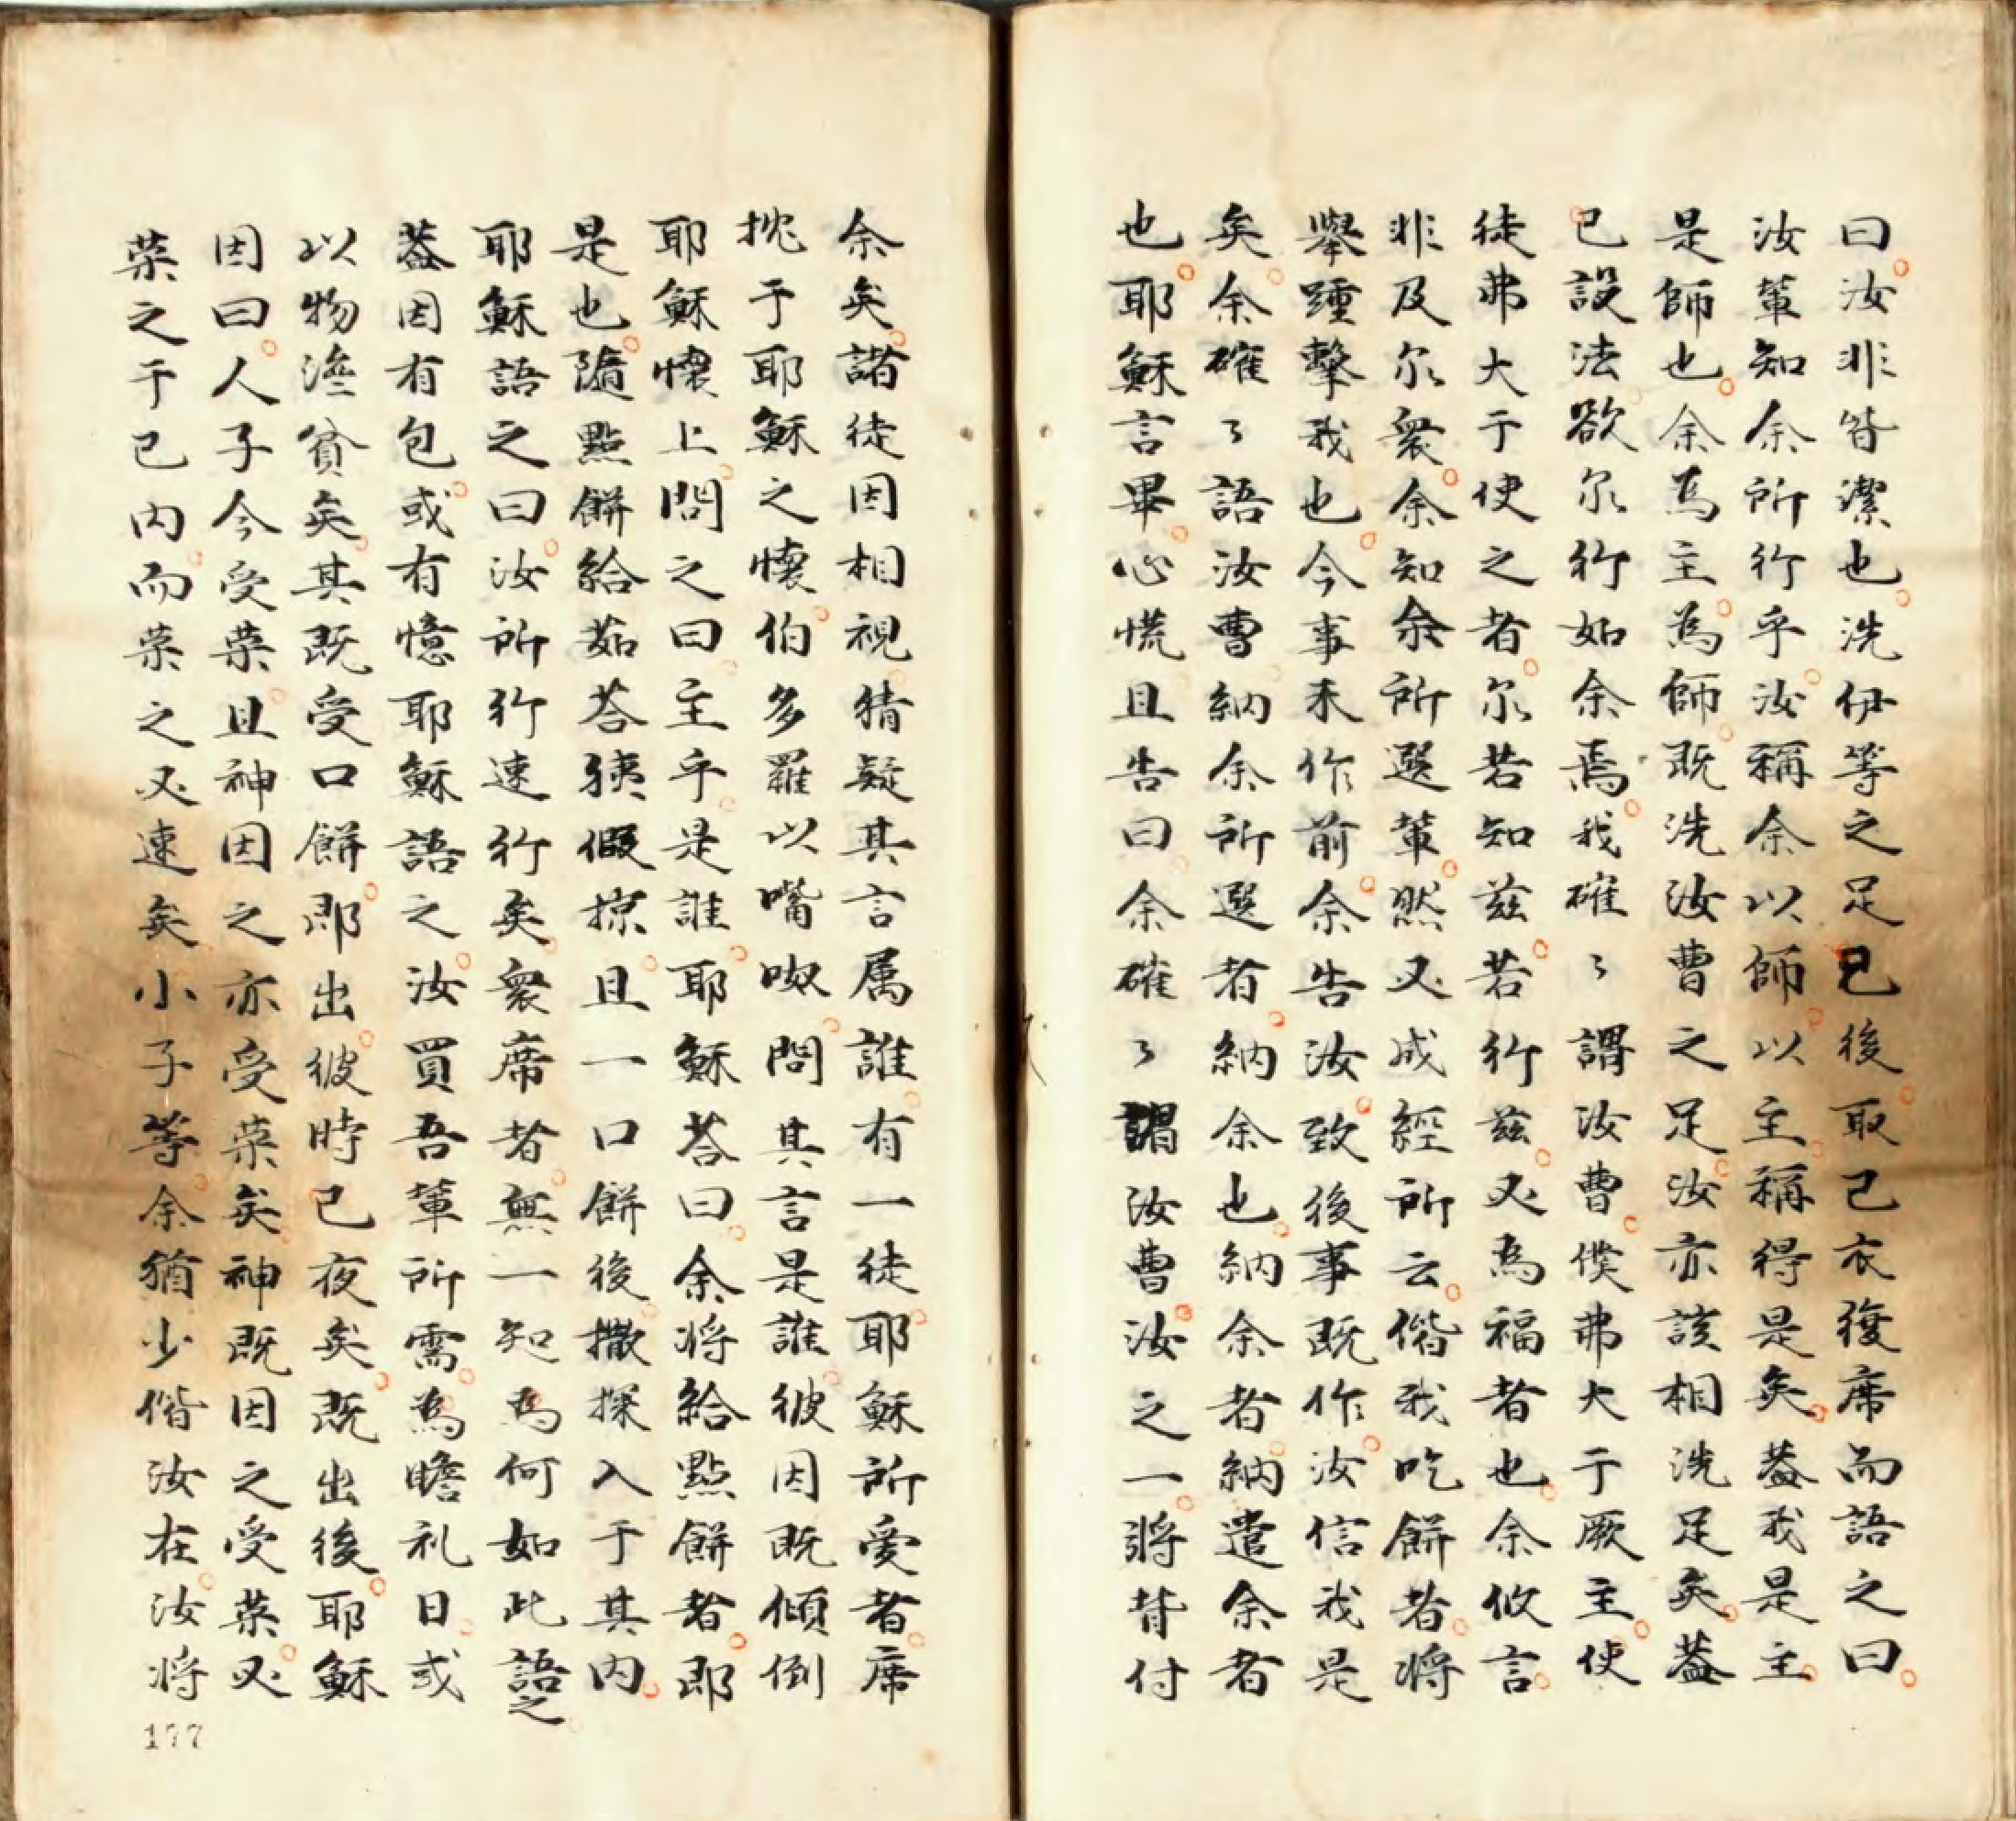 曰汝非皆潔也洗伊等之足已後取己衣復席而語之曰
汝輩知余所行乎汝稱余以師以主稱得是矣蓋我是主
是師也余為主為師既洗汝曹之足汝亦該相洗足矣蓋
已設法欲尔行如余焉我確々謂汝曹僕弗大于厥主使
徒弗大于使之者尔若知兹若行兹必為福者也余攸言
非及尔衆余知余所選輩然必成經所云偕我吃餅者将
舉踵擊我也今事未作前余告汝致後事既作汝信我是
矣余確々語汝曹納余所選者納余也納余者納遣余者
也耶穌言畢心慌且告曰余確々謂汝曹汝之一將背付
余矣諸徒因相視猜疑其言属誰有一徒耶穌所愛者席
枕于耶穌之懷伯多羅以嘴呶問其言是誰彼因既傾倒
耶穌懷上問之曰主乎是誰耶穌荅曰余将給點餅者即
是也随點餅給茹荅鴺假掠且一口餅後撒探入于其内
耶穌語之曰汝所行速行矣衆席者無一知為何如此語之
蓋因有包或有憶耶穌語之汝買吾輩所需為瞻礼日或
以物濟貧矣其既受口餅即出彼時已夜矣既出後耶穌
因曰人子今受荣且神因之亦受荣矣神既因之受荣必
荣之于己内而荣之必速矣小子等余猶少偕汝在汝将
177